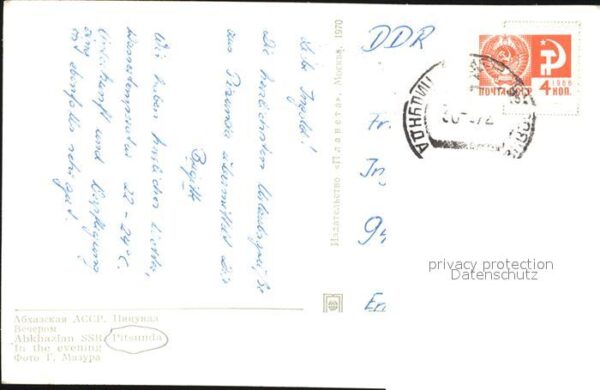 Liebe Ingrid!
Die herzlichsten Urlaubsgrüße
aus Pizunda übermittelt Dir
Brigitte
Wir haben herrliches Wetter,
Wassertemperatur 22-24°C.
Unterkunft und Verpflegung
ist ebenfalls sehr gut!
Издательство «Планета». Москва. 1970
DDR
ПОЧТА СССР
1966
4 КОП.
Fr
In
Er
privacy protection
Datenschutz
Абхазская АССР. Пицунда
Вечером
Abkhazian SSR. Pitsunda
In the evening
Фото Г. Мазура